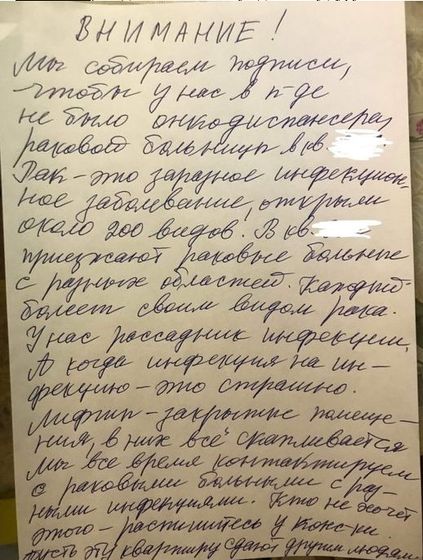 ВНИМАНИЕ!
Мы собираем подписи,
чтобы у нас в п-де
не было онкодиспансера,
раковой больницы в кв.
Рак - это заразное инфекцион-
ное заболевание, открыли
около 200 видов! В кв.
приезжают раковые больные
с разных областей. Каждый
болеет своим видом рака.
У нас рассадник инфекции.
А когда инфекция на ин-
фекцию - это страшно.
Лифты - закрытые помеще-
ния, в них всё скапливается
Мы все время контактируем
с раковыми больными с раз-
ными инфекциями. Кто не хочет
этого - распишитесь у конс-ки.
пусть эту квартиру сдают другим людям